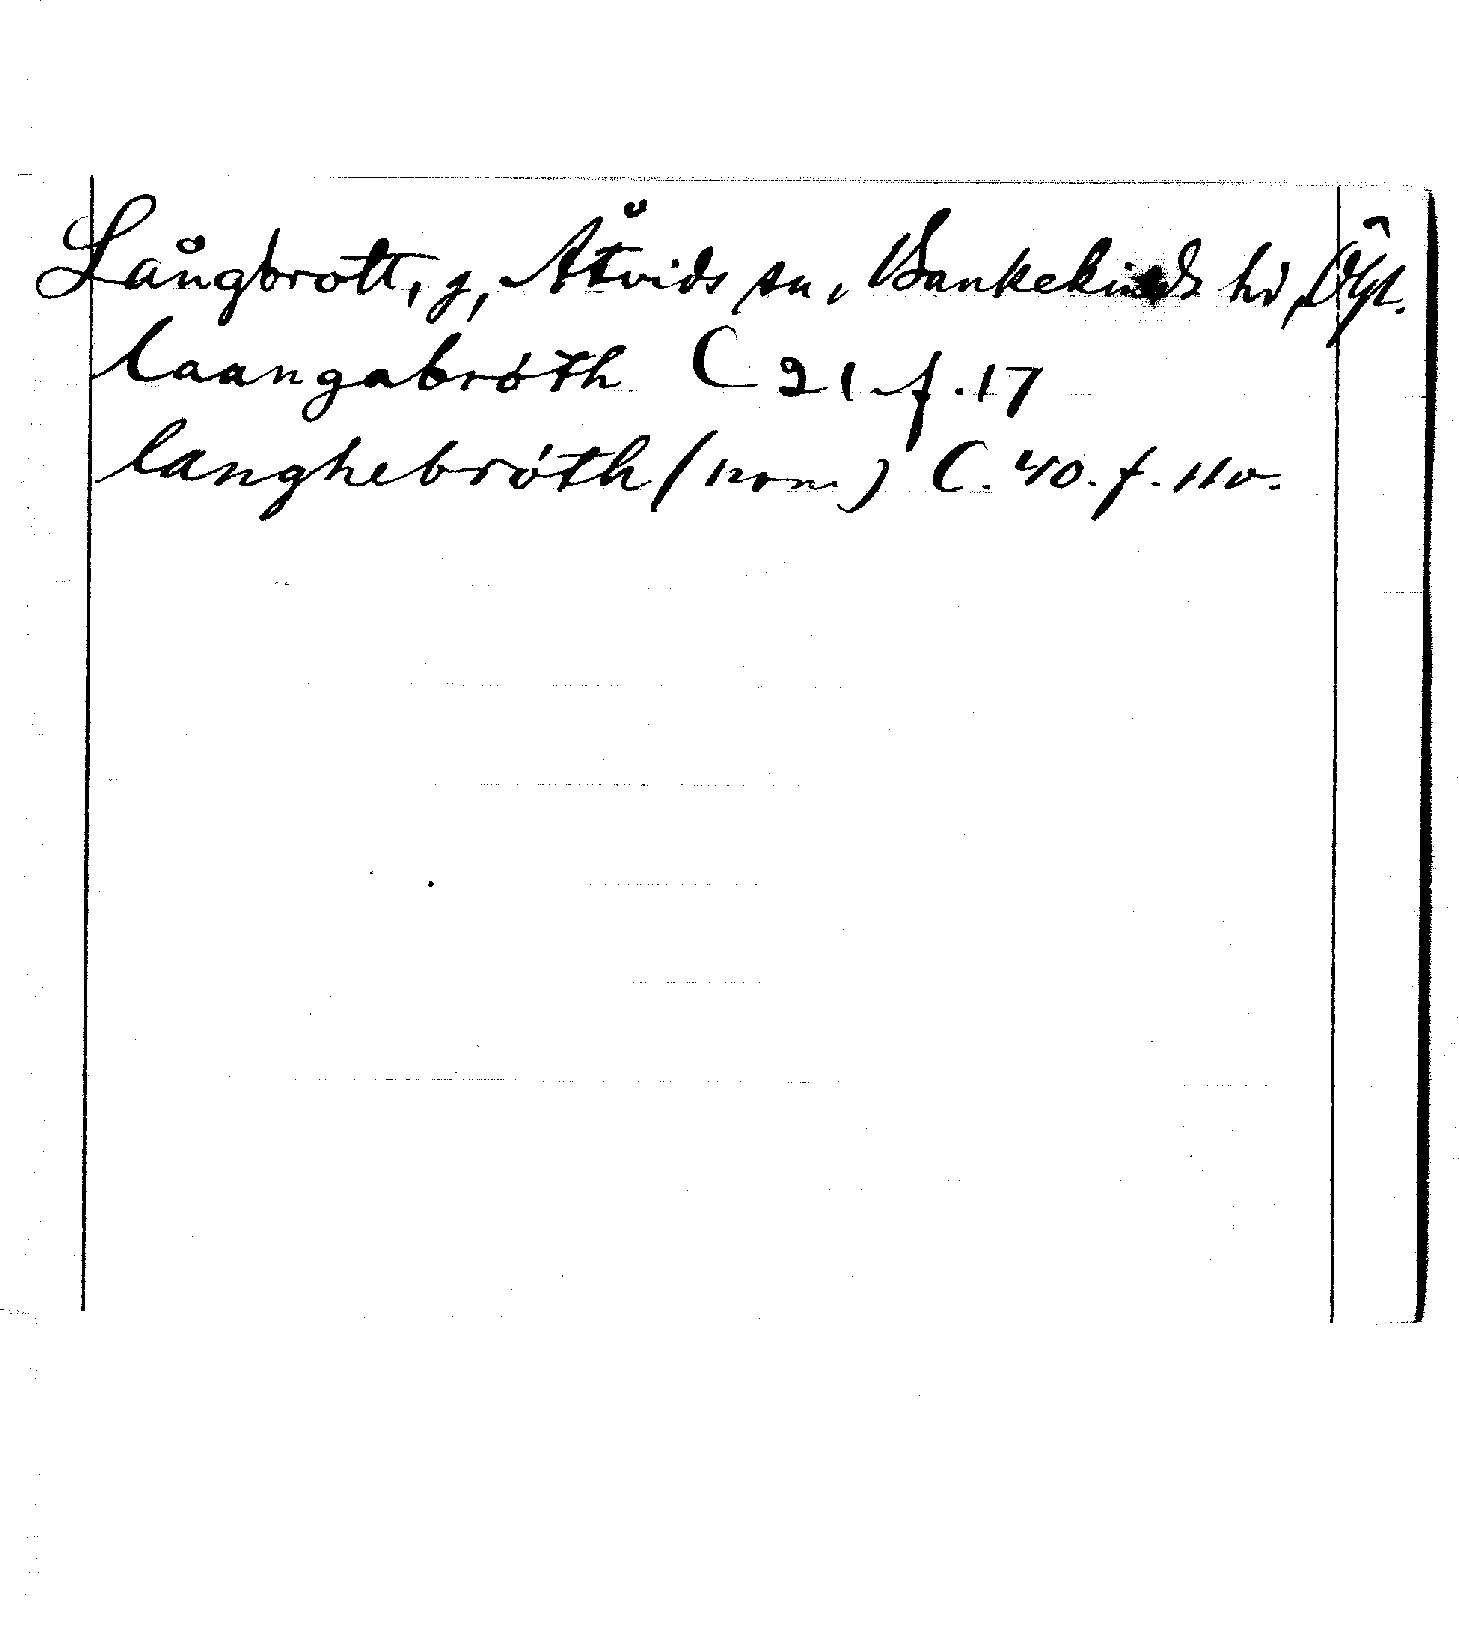 Långbrott, g, Åtvids sn, Bankekinds hd, Ögl.
laangabróth C 21 f. 17
langhebróth (nom) C. 40. f. 110.